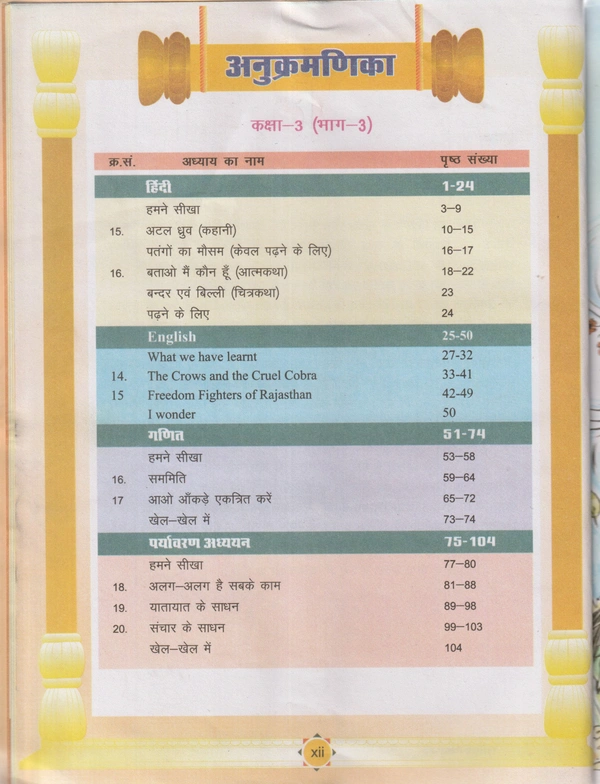 अनुक्रमणिका
कक्षा–3 (भाग–3)
क्र.सं. अध्याय का नाम पृष्ठ संख्या
हिंदी 1-24
हमने सीखा 3–9
15. अटल ध्रुव (कहानी) 10–15
पतंगों का मौसम (केवल पढ़ने के लिए) 16–17
16. बताओ मैं कौन हूँ (आत्मकथा) 18–22
बन्दर एवं बिल्ली (चित्रकथा) 23
पढ़ने के लिए 24
English 25-50
What we have learnt 27-32
14. The Crows and the Cruel Cobra 33-41
15 Freedom Fighters of Rajasthan 42-49
I wonder 50
गणित 51-74
हमने सीखा 53–58
16. सममिति 59–64
17 आओ आँकड़े एकत्रित करें 65–72
खेल–खेल में 73–74
पर्यावरण अध्ययन 75-104
हमने सीखा 77–80
18. अलग–अलग है सबके काम 81–88
19. यातायात के साधन 89–98
20. संचार के साधन 99–103
खेल–खेल में 104
xii